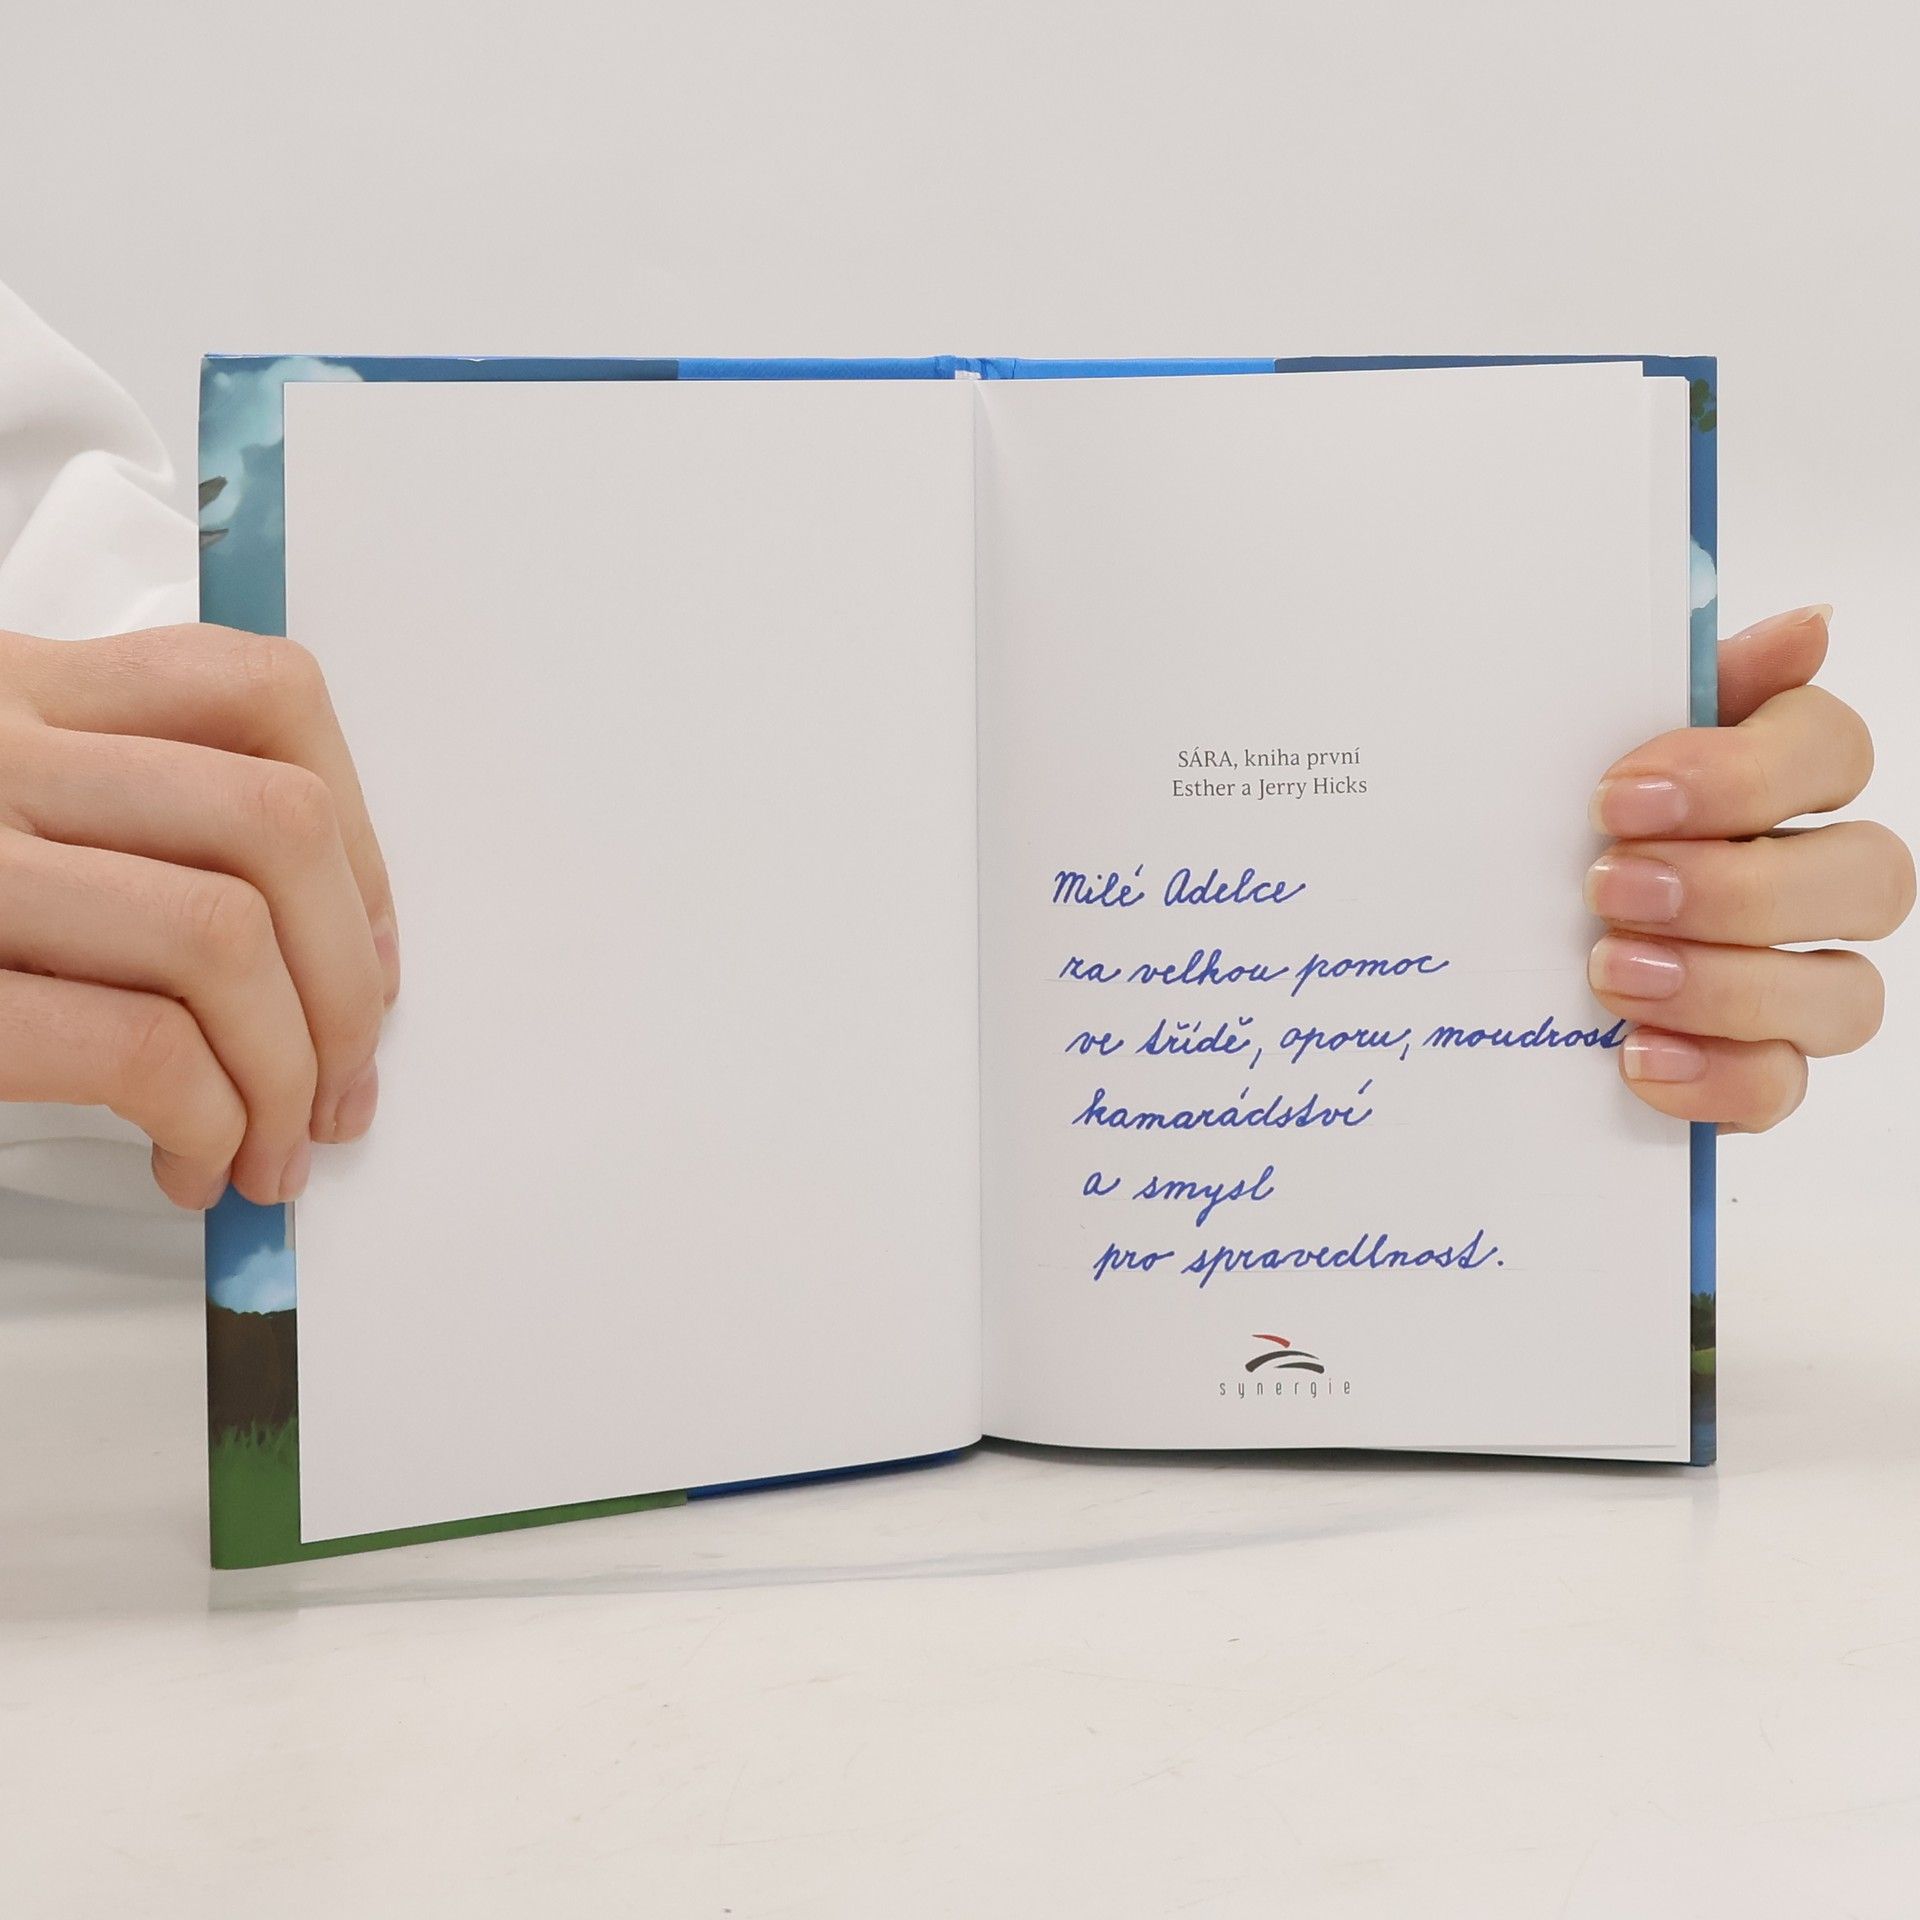 SÁRA, kniha první
Esther a Jerry Hicks
Milé Adelce
za velkou pomoc
ve třídě, oporu, moudrost
kamarádství
a smysl
pro spravedlnost.
synergie